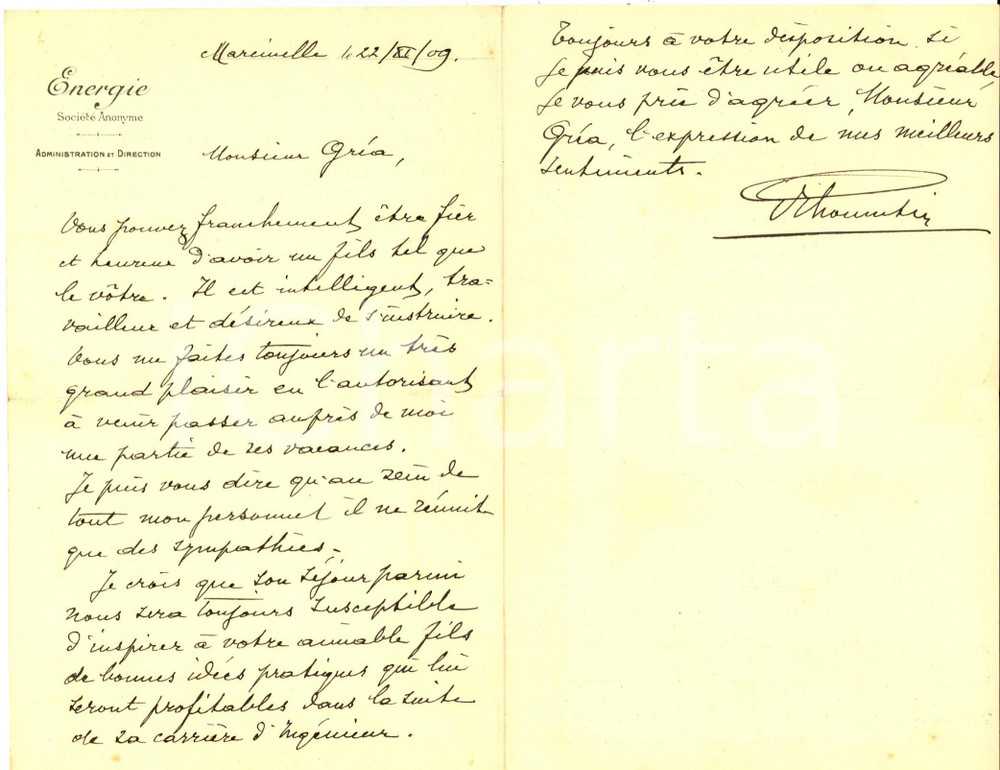 Marcinelle le 22/XI/09.
Energie
Société Anonyme
Administration et Direction
Monsieur Gréa,
Vous pouvez franchement être fier
et heureux d'avoir un fils tel que
le vôtre. Il est intelligent, tra=
vailleur et désireux de s'instruire.
Vous me faites toujours un très
grand plaisir en l'autorisant
à venir passer auprès de moi
une partie de ses vacances.
Je puis vous dire qu'au sein de
tout mon personnel il ne réunit
que des sympathies.
Je crois que son séjour parmi
nous sera toujours susceptible
d'inspirer à votre aimable fils
de bonnes idées pratiques qui lui
seront profitables dans la suite
de sa carrière d'Ingénieur.
Toujours à votre disposition si
je puis vous être utile ou agréable,
je vous prie d'agréer, Monsieur
Gréa, l'expression de mes meilleurs
sentiments.